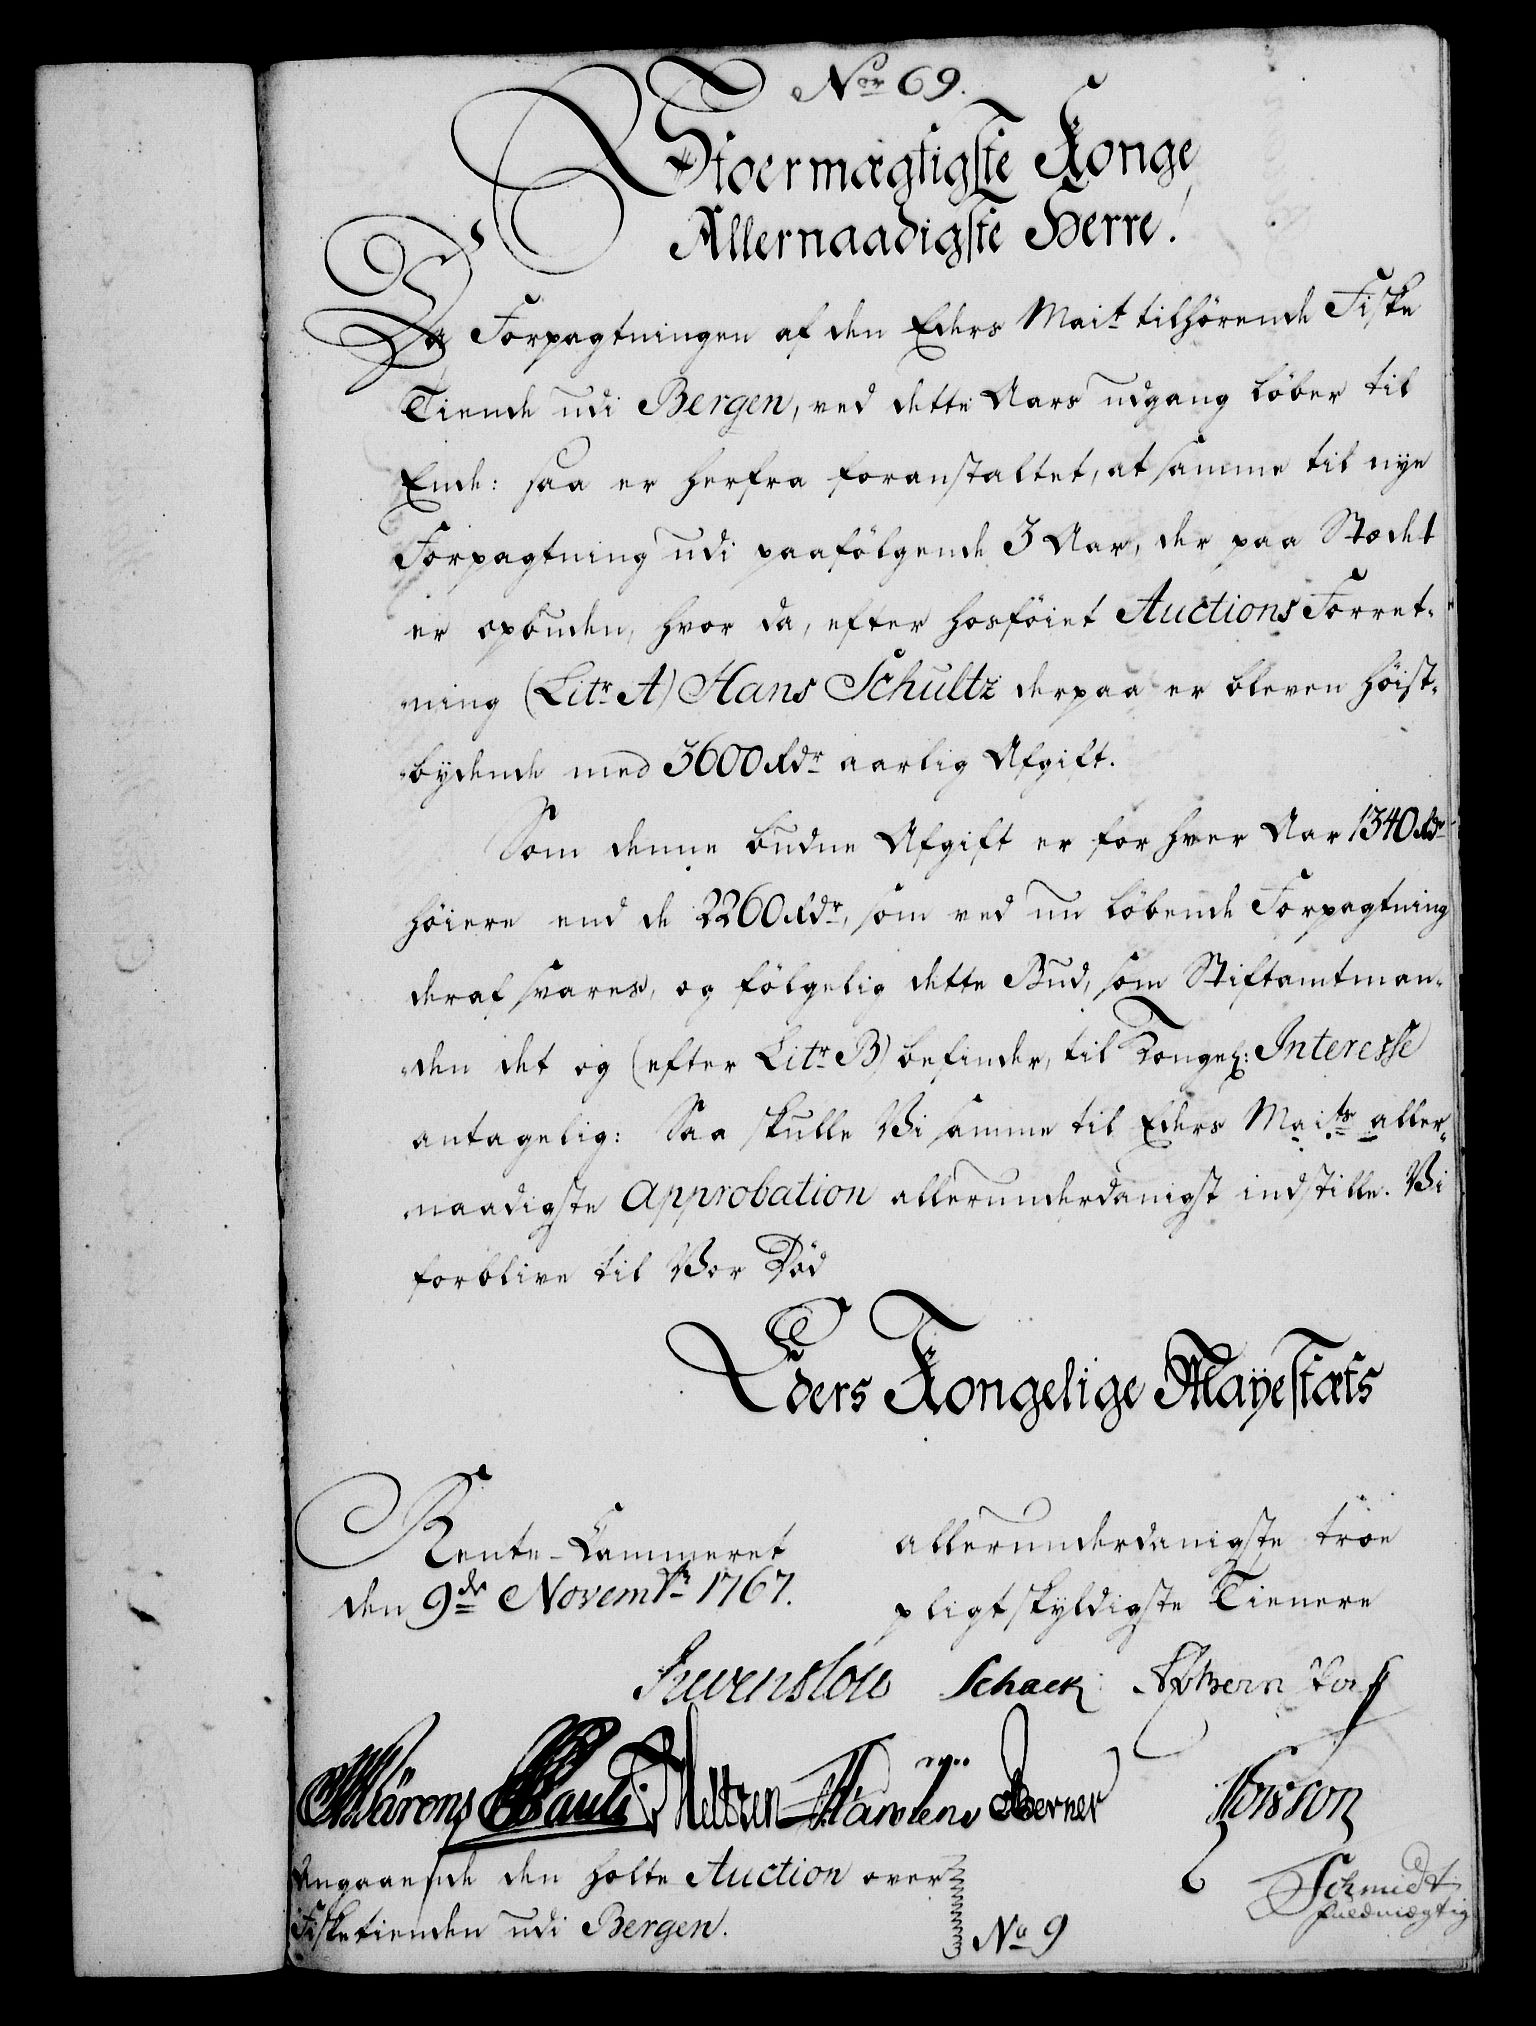 Nor 69.
Stoermægtigste Konge
Allernaadigste Herre!
Da Forpagtningen af den Eders Mait tilhörende Fiske
Tiende udi Bergen, ved dette Aars udgang löber til
Ende: saa er herfra foranstaltet, at samme til nye
Forpagtning udi paafölgende 3 Aar, der paa Stædet
er opbuden, hvor da, efter hosföiet Auctions Forret-
ning (Litr A) Hans Schultz derpaa er bleven höist-
bydende med 3600 Rdr aarlig Afgift.
Som denne budne Afgift er for hver Aar 1340 Rdr
höiere end de 2260 Rdr, som ved nu löbende Forpagtning
deraf svares, og fölgelig dette Bud, som Stiftamtman-
den det og (efter Litr B) befinder, til Kongel: Interesse
antagelig: Saa skulle Vi samme til Eders Maits aller-
naadigste Approbation allerunderdanigst indstille. Vi
forblive til Vor Död
Eders Kongelige Mayestæts
Rente-Cammeret
den 9de Novembr 1767.
allerunderdanigste troe
pligtskyldigste Tienere
Reventlow Schack
Pauli Meltzen Berner
Angaaende den holte Auction over
Fisketienden udi Bergen.
No 9
Schmidt
fuldmægtig